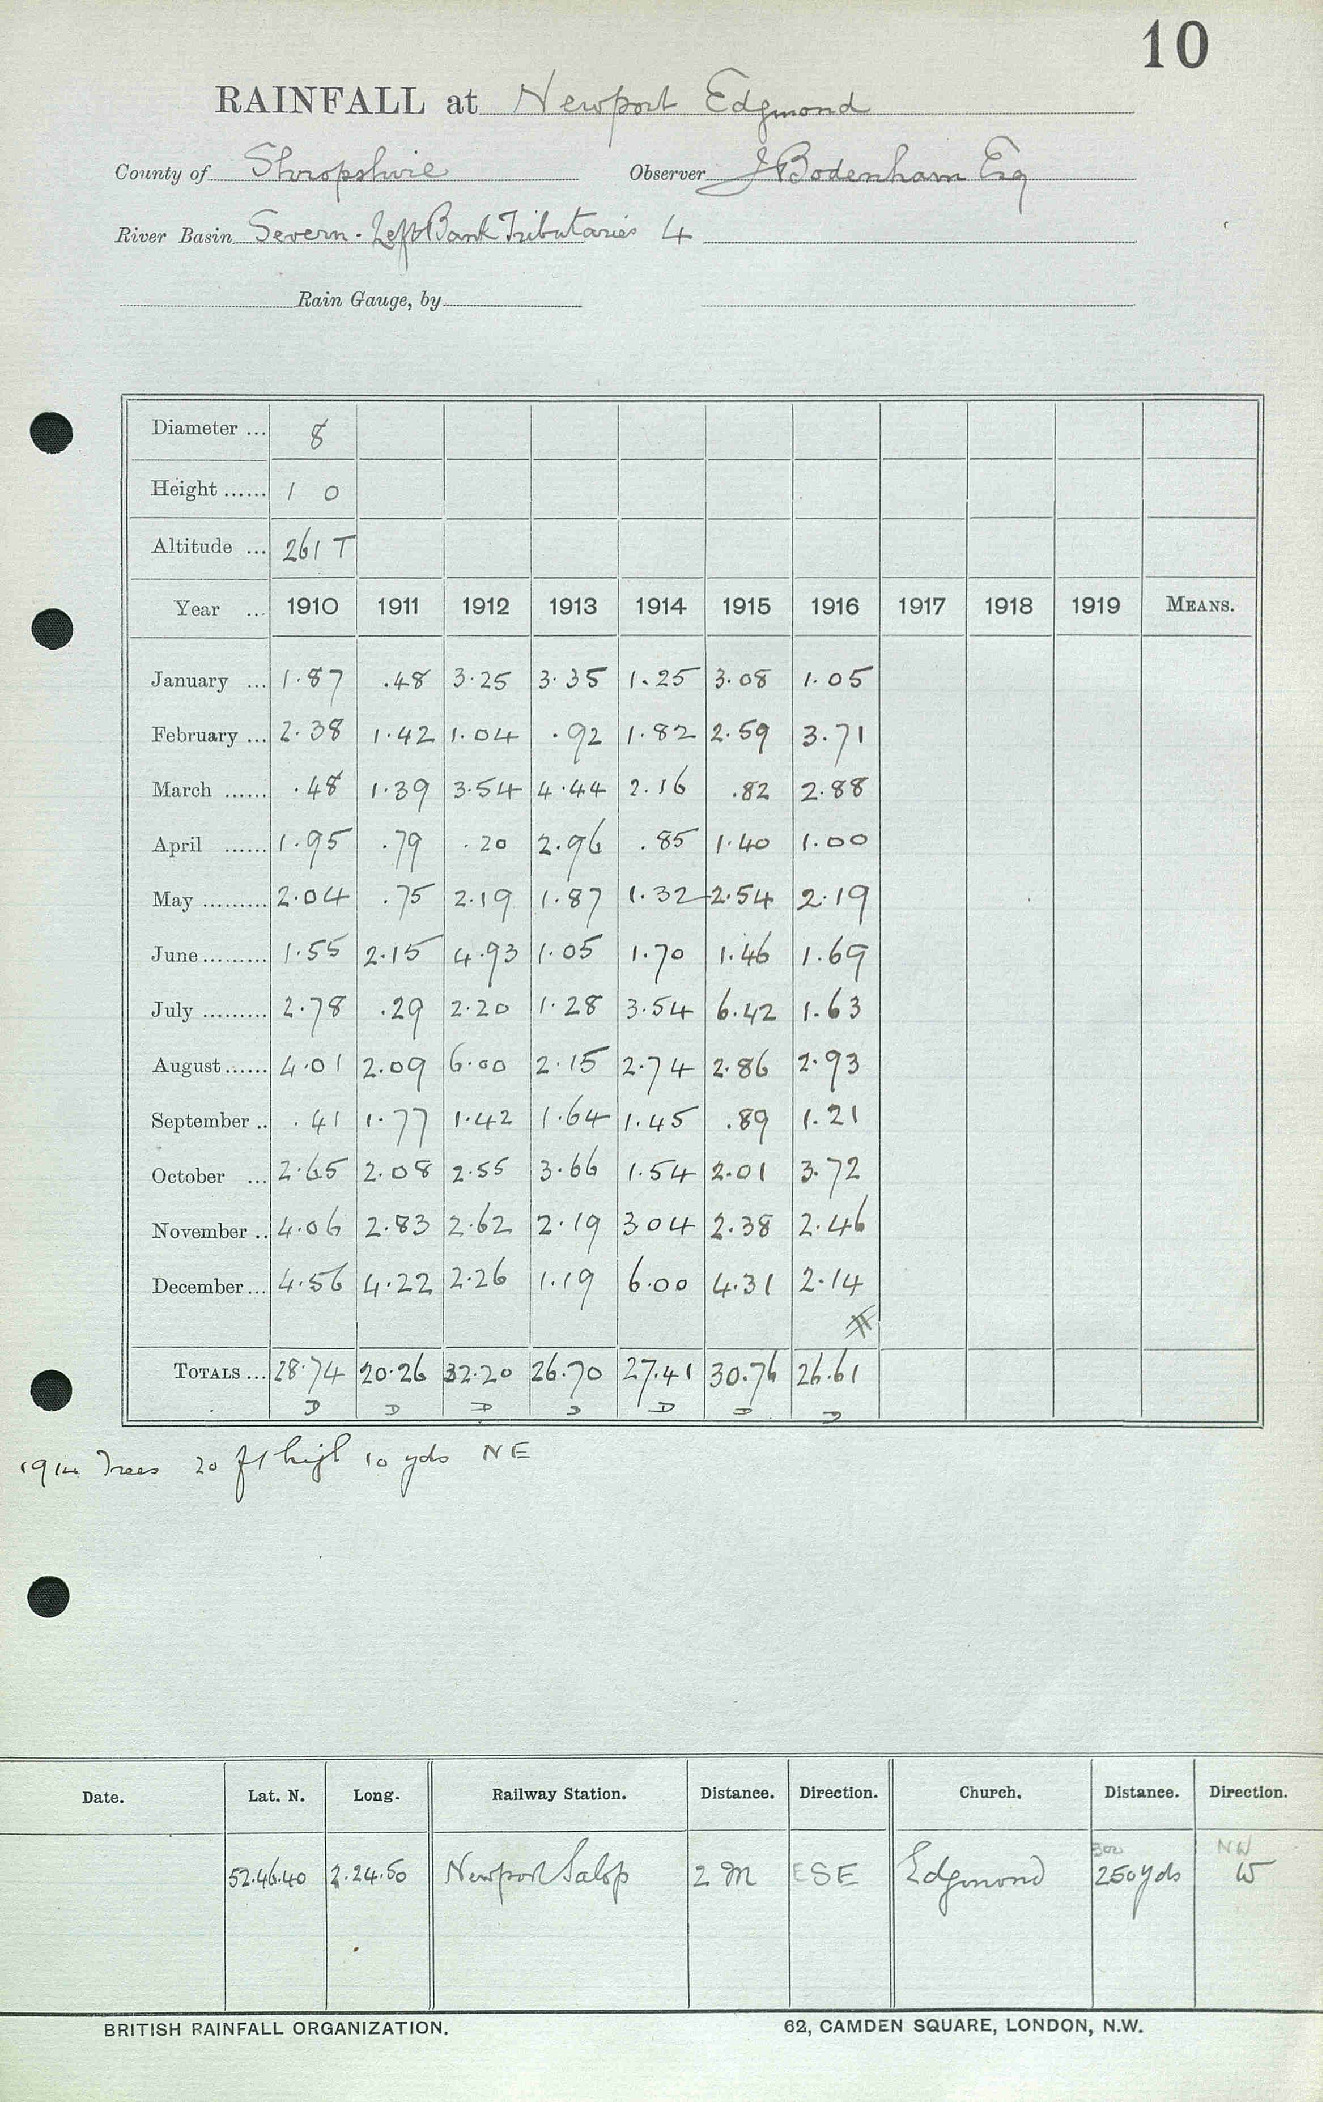 10
RAINFALL at Newport Edgmond
County of Shropshire Observer J Bodenham Esq
River Basin Severn - Left Bank Tributaries 4
Rain Gauge, by
Diameter ... 8
Height ...... 1 0
Altitude ... 261 T
Year ... 1910 1911 1912 1913 1914 1915 1916 1917 1918 1919 MEANS.
January ... 1.87 .48 3.25 3.35 1.25 3.08 1.05
February ... 2.38 1.42 1.04 .92 1.82 2.59 3.71
March ...... .48 1.39 3.54 4.44 2.16 .82 2.88
April ...... 1.95 .79 .20 2.96 .85 1.40 1.00
May ......... 2.04 .75 2.19 1.87 1.32 2.54 2.19
June ......... 1.55 2.15 4.93 1.05 1.70 1.46 1.69
July ......... 2.78 .29 2.20 1.28 3.54 6.42 1.63
August ...... 4.01 2.09 6.00 2.15 2.74 2.86 2.93
September .. .41 1.77 1.42 1.64 1.45 .89 1.21
October ... 2.65 2.08 2.55 3.66 1.54 2.01 3.72
November .. 4.06 2.83 2.62 2.19 3 04 2.38 2.46
December ... 4.56 4.22 2.26 1.19 6.00 4.31 2.14
TOTALS ... 28.74 20.26 32.20 26.70 27.41 30.76 26.61
D D D D D D D
1914 Trees 20 ft high 10 yds NE
Date. Lat. N. Long. Railway Station. Distance. Direction. Church. Distance. Direction.
300 NW
52.46.40 2.24.50 Newport Salop 2 M ESE Edgmond 250 yds W
BRITISH RAINFALL ORGANIZATION. 62, CAMDEN SQUARE, LONDON, N.W.